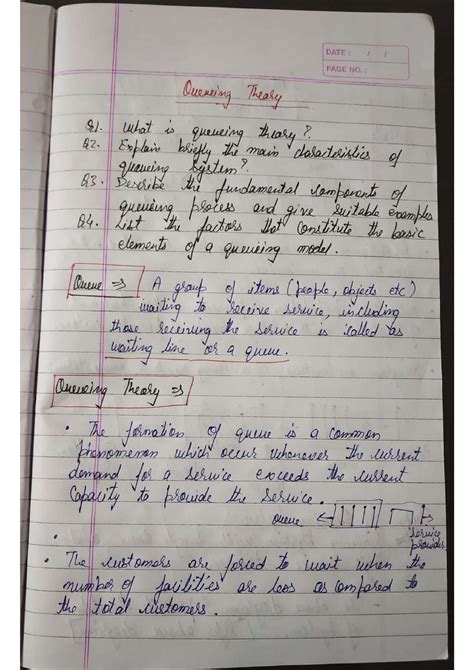 DATE: / /
PAGE NO.:
Queueing Theory
Q1. What is queueing theory?
Q2. Explain briefly the main characteristics of
queueing system?
Q3. Describe the fundamental components of
queueing process and give suitable examples
Q4. List the factors that constitute the basic
elements of a queueing model.
Queue ⇒ A group of items (people, objects etc)
waiting to receive service, including
those receiving the service is called as
waiting line or a queue.
Queueing Theory ⇒
• The formation of queue is a common
phenomenon which occur whenever the current
demand for a service exceeds the current
Capacity to provide the service.
Queue
service
provider
•
• The customers are forced to wait when the
number of facilities are less as compared to
the total customers.